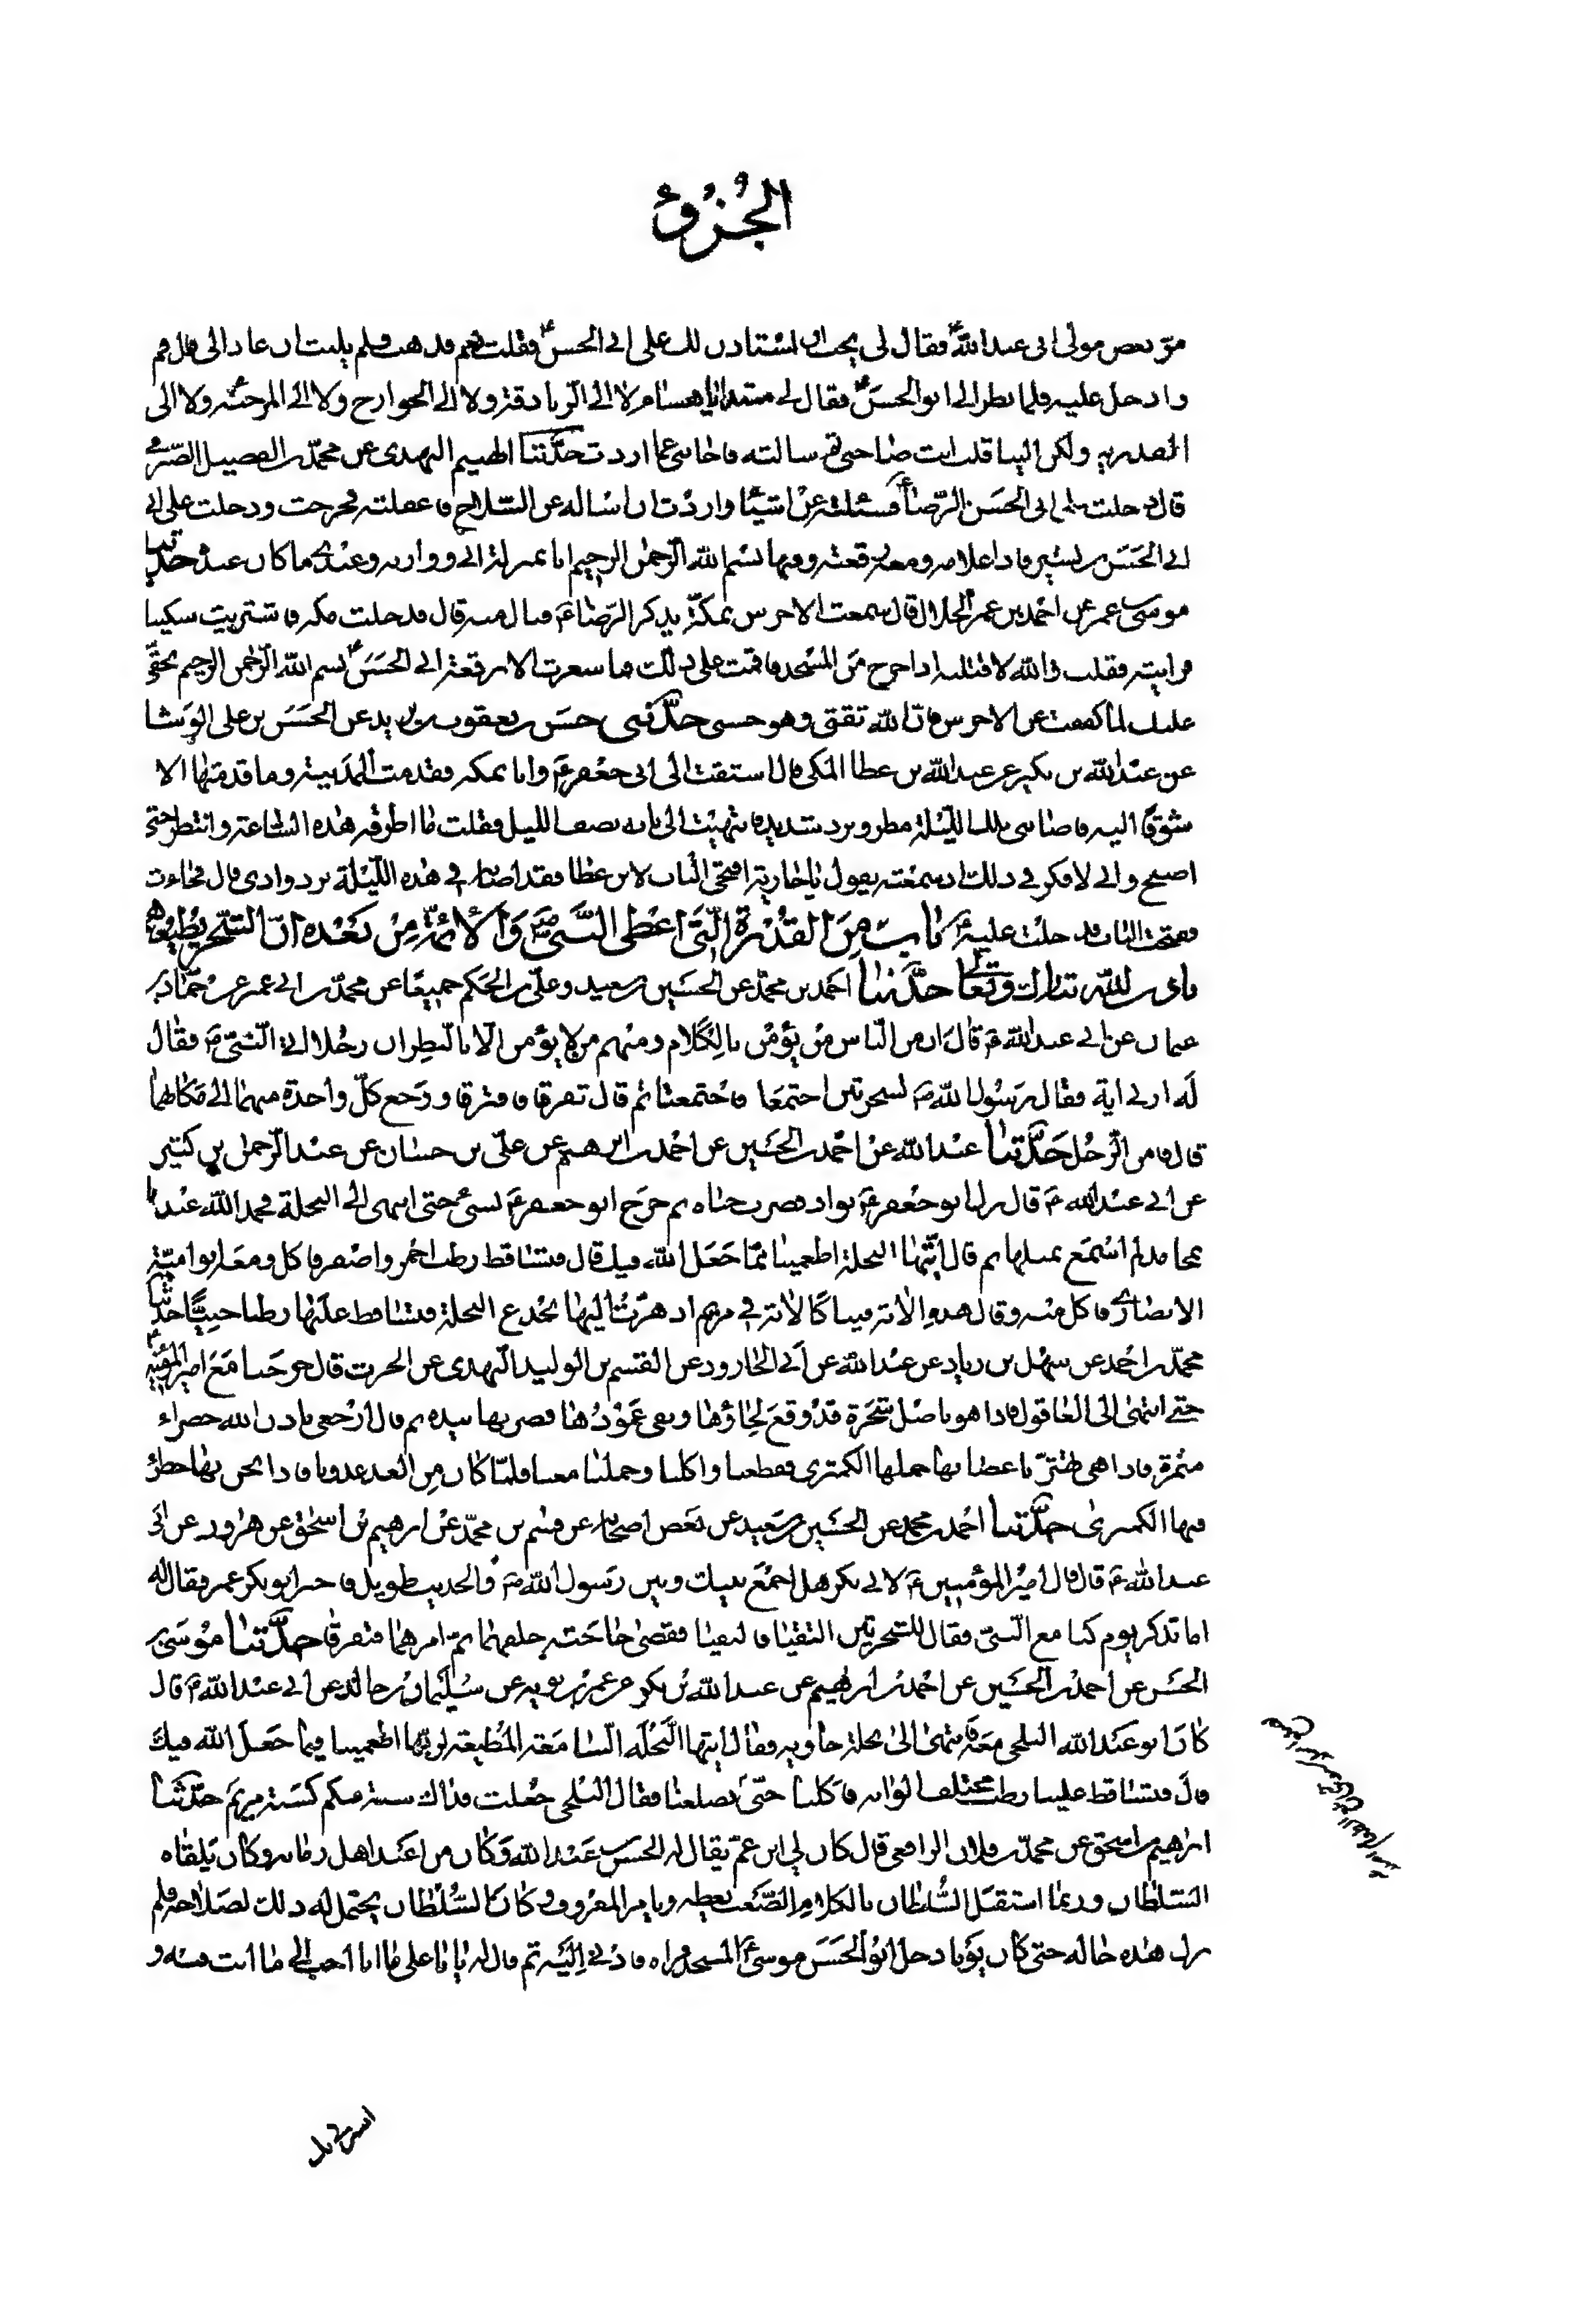 الجُزُوءُ
مرّ بعض مولى ابى عبد الله ع فقال لى يحب ان استاذن لك على ابى الحسن ع فقلت نعم فذهب فلم يلبث ان عاد الى قال قم
وادخل عليه فلما نظر الى ابو الحسن ع فقال لى مبتدئا يا هشام لا الى الزنادقة ولا الى الخوارج ولا الى المرجئة ولا الى
القدرية ولكن الينا قلت انت صاحبى ثم سالته فاجابنى عما اردت حدّثنا الهيثم النهدى عن محمّد بن الفضيل الصيرفى
قال دخلت على ابى الحسن الرّضا ع فسئلته عن اشياء واردت ان اساله عن السّلاح فاغفلته فخرجت ودخلت على ابى
الى الحَسَن بن بشير فاذا غلامه ومعه رقعته وفيها بسم الله الرّحمن الرحيم انا بمنزلة ابى ووارثه وعندى ما كان عنده حدّثنا
موسى بن عمر عن احمد بن عمر الحلال قال سمعت الاخرس بمكّة يذكر الرّضا ع فنال منه قال فدخلت مكه فاشتريت سكينا
فرايته فقلت والله لاقتلنه اذا خرج من المسجد فاقمت على ذلك فما شعرت الا برقعة ابى الحَسَن ع بسم الله الرّحمن الرحيم بحقّى
عليك لما كففت عن الاخرس فان الله ثقتى وهو حسبى حدّثنى حسن بن يعقوب بن يزيد عن الحَسَن بن على الوَشا
عن عبد الله بن بكير عن عبد الله بن عطا المكى قال اشتقت الى ابى جعفر ع وانا بمكه فقدمت المدينة وما قدمتها الا
شوقًا اليه فاصابنى تلك الليلة مطر وبرد شديد فانتهيت الى بابه نصف الليل فقلت ما اطرقه هذه السّاعة وانتظر حتى
اصبح وانى لافكر فى ذلك اذ سمعته يقول يا جارية افتحى الباب لابن عطا فقد اصابه فى هذه اللّيلة برد واذى قال فجاءت
ففتحت الباب فدخلت عليه ع باب مِنَ القُدْرَةِ الّتى اَعْطى النَّبِىَّ ص وَالْاَئمّة مِنْ بَعْدِه انّ الشّجر يُطيعهم
باذن الله تبارك وتعالى حدّثنا احمد بن محمّد عن الحسَين بن سعيد وعلىّ بن الحكم جميعًا عن محمّد بن ابى عمير عن حمّاد بن
عثمان عن ابى عبد الله ع قال انّ من النّاس من يؤمن بالكلام ومنهم من لا يؤمن الّا بالنظر ان رجُلا اتى النّبىّ ص فقال
لَه ارنى اية فقال رَسُول الله ص لشجرتين اجتمعا فاجتمعتا ثم قال تفرقا فافترقا ورَجع كلّ واحدة منهما الى مَكانهما
قال فامن الرّجُل حَدّثنا عبد الله عن احمد بن الحسَين عن احمد بن ابرهيم عن علىّ بن حسّان عن عبد الرّحمن بن كثير
عن ابى عبد الله ع قال نزل ابو جعفر ع بواد فضرب خباه ثم خرج ابو جعفر ع بشىء حتى انتهى الى النخلة فحمد الله عندها
بمحامد لم اسمَع بمثلها ثم قال ايّتها النخلة اطعمينا ممّا جَعَل الله فيك قال فتساقط رطب احمر واصفر فاكل ومعه ابو اميّة
الانصارى فاكل منه وقال هذه الاية فينا كالاية فى مريم اذ هزّت اليها بجذع النخلة فتساقط عليها رطبا جنيًّا حدّثنا
محمّد بن احمد عن سهل بن زياد عن عبد الله عن ابى الجارود عن القسم بن الوليد النهدى عن الحرث قال خرجنا مَعَ امير المؤمنين ع
حتى انتهى الى العاقول فاذا هو باصل شجرة قد وقع لحاؤها وبقى عمودها فضربها بيده ثم قال ارجعى باذن الله خضراء
مثمرة فاذا هى تهتزّ باغصانها حملها الكمثرى فقطعنا واكلنا وحملنا معنا فلمّا كان من الغد غدونا فاذا نحن بها خضراء
فيها الكمثرى حدّثنا احمد بن محمد عن الحسَين بن سعيد عن بعض اصحابه عن قسم بن محمّد عن ابرهيم بن اسحق عن هرون عن ابى
عبد الله ع قال قال امير المؤمنين ع لابى بكر هل اجمَع بينك وبين رَسول الله ص والحديث طويل فاخبر ابو بكر عمر فقال له
اما تذكر يوم كنا مع النّبىّ فقال للشّجرتين التقيا فالتقيا فقضى حاجَته خلفهما ثم امرهما فتفرقا حدّثنا موسى بن
الحسَن عن احمد بن الحسَين عن احمد بن ابرهيم عن عبد الله بن بكر عن عمر بن بويه عن سُليمان بن خالد عن ابى عبد الله ع قال
كان ابو عبد الله البلخى معَه فانتهى الى نخلة خاويه فقال ايتها النّخلة السّامعة المُطيعة لربّها اطعمينا فيما جَعَل الله فيك
قال فتساقط علينا رطب مختلف الوانه فاكلنا حتّى تضلعنا فقال البلخى جعلت فداك سنة فيكم كسَنة مريم حدّثنا
ابرهيم بن اسحق عن محمّد بن فلان الرافعى قال كان لى ابن عم يقال له الحسَن بن عبد الله وَكان من اعبد اهل زمانه وكان يلقاه
السّلطان وربما استقبَل السُّلطان بالكلام الصّعَب يعظه ويامر بالمعروف وكان السُّلطان يحتمل له ذلك لصَلاحه فلم
يزل هذه حاله حتى كان يَوما دخل ابو الحَسَن موسى ع المسجد فراه فادنى اليه ثم قال له يا با على ما انا احب الى ما انت فيه و